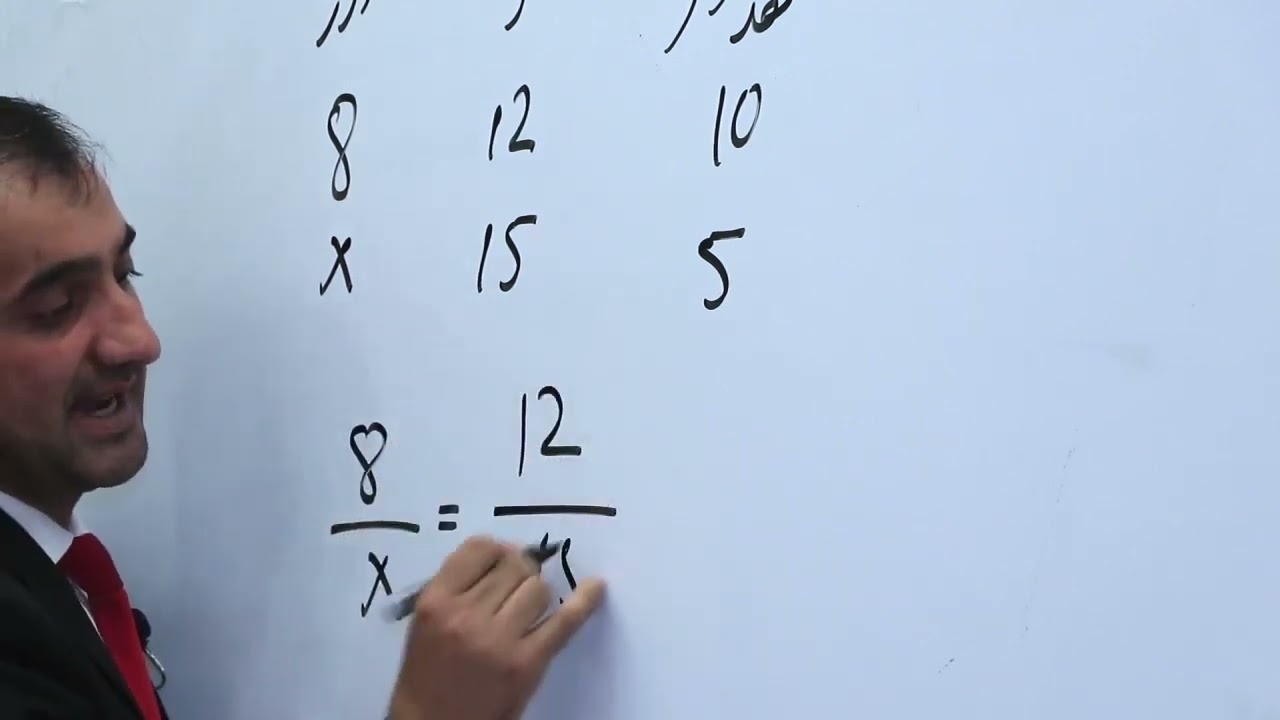 8 12 10
x 15 5
8/x = 12/15